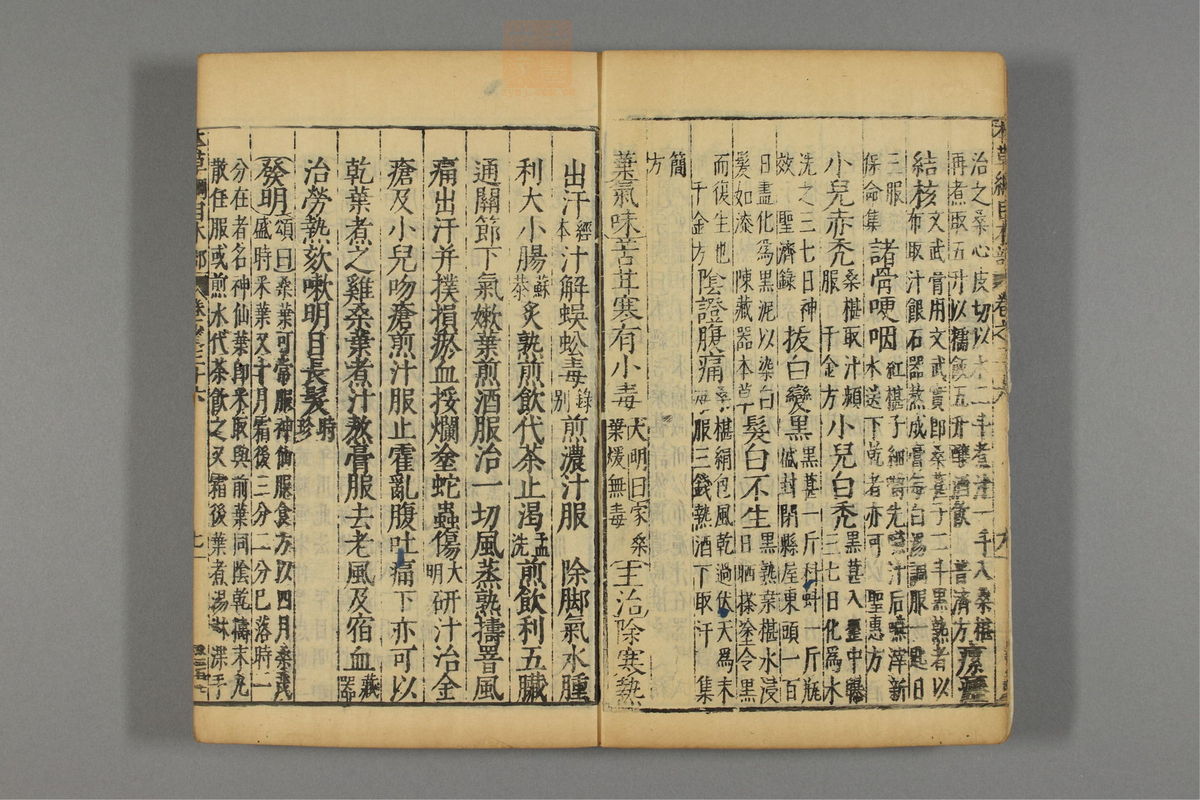 治之桑心皮切以水二斗煮汁一斗入桑椹
再煮取五升以糯飯五升釀酒飲 普濟方 瘰癧
結核 文武膏用文武實即桑葚子二斗黑熟者以
布取汁銀石器熬成膏每白湯調服一匙日
三服 保命集 諸骨哽咽 紅椹子細嚼先嚥汁后嚥滓新
水送下乾者亦可 聖惠方
小兒赤禿 桑椹取汁頻服 千金方 小兒白禿 黑葚入罌中曝
三七日化為水
洗之三七日神效 聖濟錄 拔白變黑 黑葚一斤科蚪一斤瓶
盛封閉懸屋東頭一百
日盡化為黑泥以染白
髮如漆 陳藏器本草 髮白不生 黑熟桑椹水浸
日晒搽塗令黑
而復生也 千金方 陰證腹痛 桑椹絹包風乾過伏天為末
每服三錢熱酒下取汗 集
簡
方
葉氣味苦甘寒有小毒 大明曰家桑
葉煖無毒 主治除寒熱
出汗 本經 汁解蜈蚣毒 別錄 煎濃汁服 除脚氣水腫
利大小腸 蘇恭 炙熟煎飲代茶止渴 孟詵 煎飲利五臟
通關節下氣嫩葉煎酒服治一切風蒸熟擣罯風
痛出汗并撲損瘀血挼爛塗蛇蟲傷 大明 研汁治金
瘡及小兒吻瘡煎汁服止霍亂腹吐痛下亦可以
乾葉煮之雞桑葉煮汁熬膏服去老風及宿血 藏器
治勞熱欬嗽明目長髮 時珍
發明 頌曰桑葉可常服神仙服食方以四月桑茂
盛時采葉又十月霜後三分二分已落時一
分在者名神仙葉即采取與前葉同陰乾擣末丸
散任服或煎水代茶飲之又霜後葉煮湯淋渫手